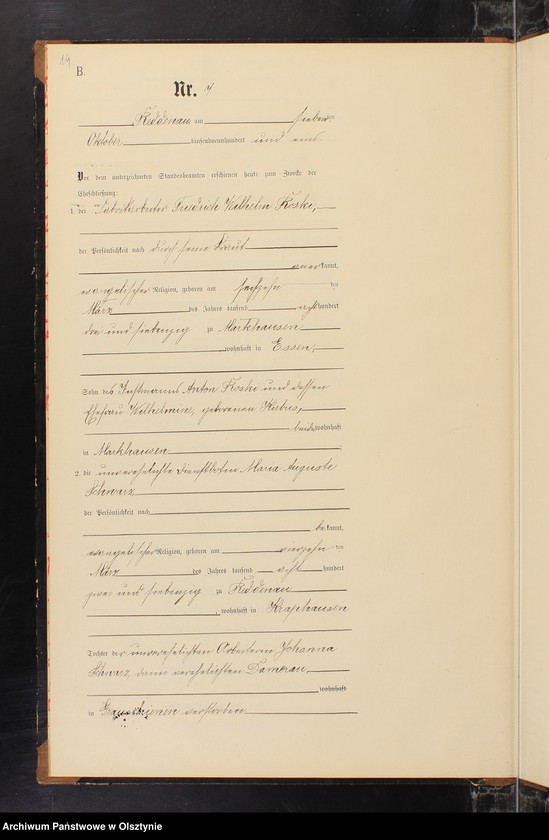 14
B.
Nr. 4
Kiddenau am sieben ten
Oktober tausendneunhundert und eins
Vor dem unterzeichneten Standesbeamten erschienen heute zum Zwecke der
Eheschließung:
1. der Fabrikarbeiter Friedrich Wilhelm Koske,
der Persönlichkeit nach durch seine Braut
anerkannt,
evangelischer Religion, geboren am sechzehn ten
März des Jahres tausend achthundert
drei und siebenzig zu Markhausen
, wohnhaft in Essen,
Sohn des Instmanns Anton Koske und dessen
Ehefrau Wilhelmine, geborenen Kubus,
beide wohnhaft
in Markhausen
2. die unverehelichte Dienstboten Maria Auguste
Schwarz
der Persönlichkeit nach
be kannt,
evangelischer Religion, geboren am vierzehn ten
März des Jahres tausend acht hundert
zwei und siebenzig zu Kiddenau
, wohnhaft in Kraphausen
Tochter der unverehelichten Arbeiterin Johanna
Schwarz, dann verehelichten Damerau,
wohnhaft
in verstorben
Archiwum Państwowe w Olsztynie